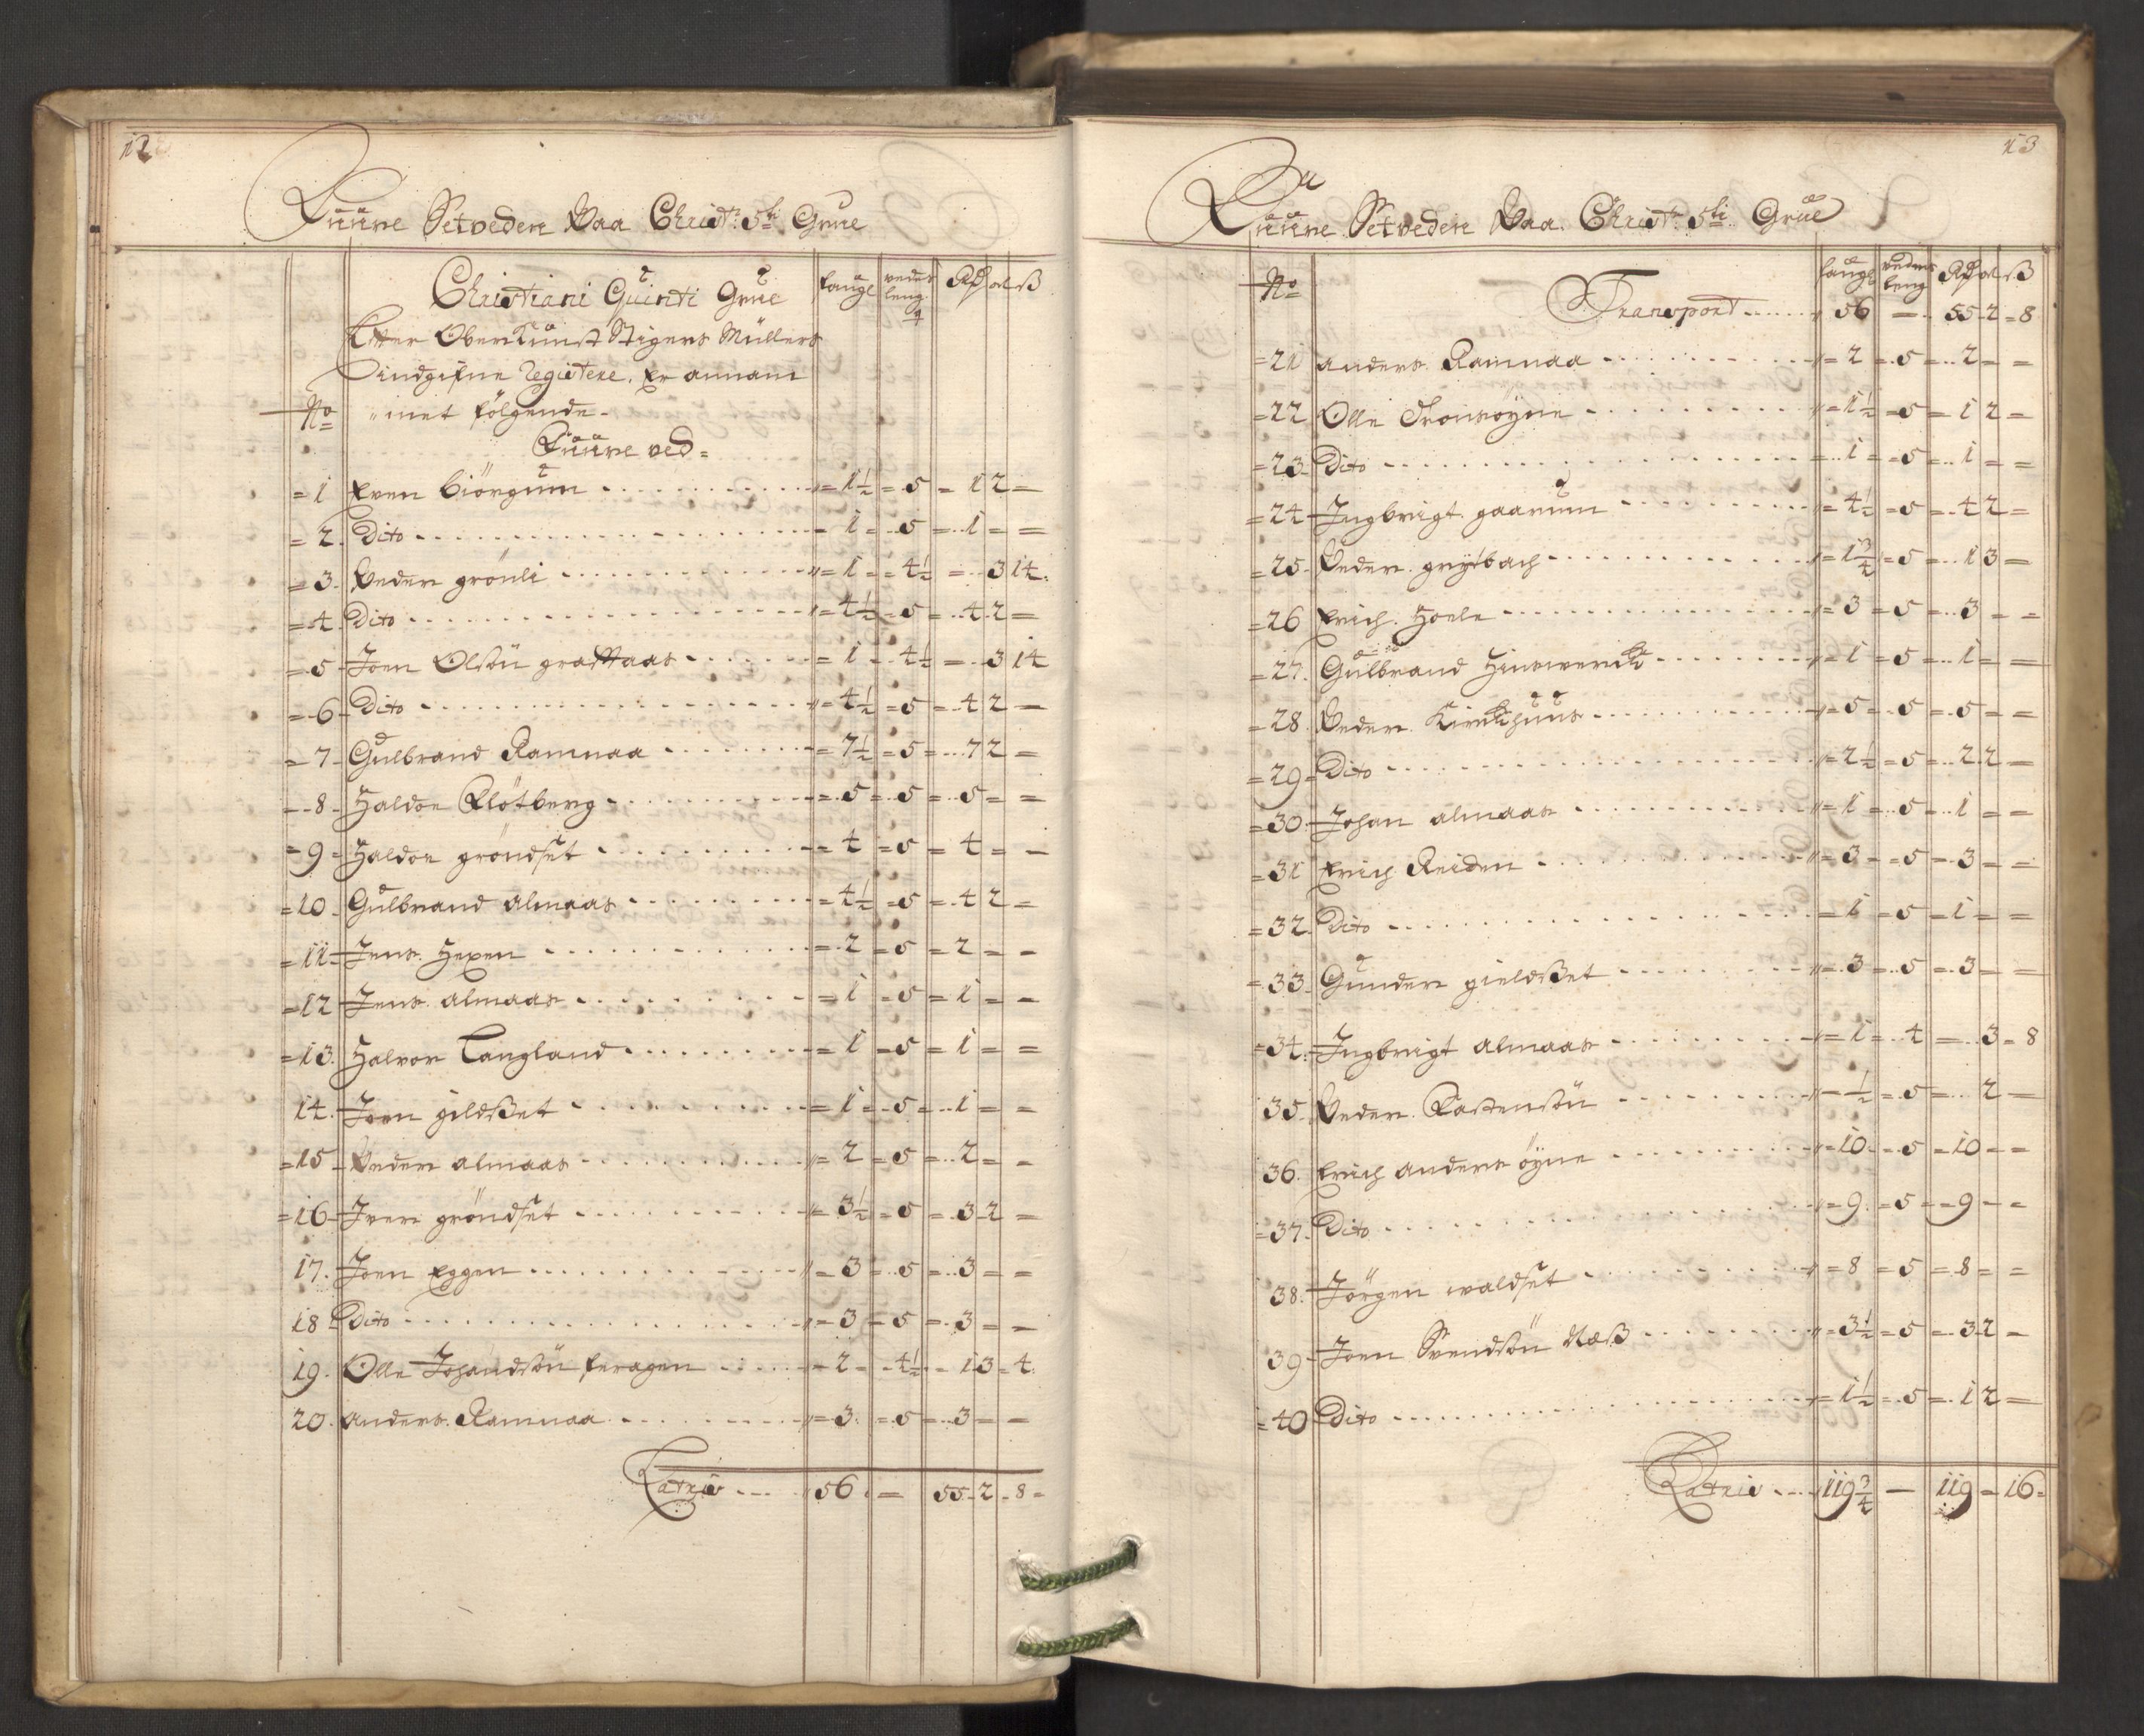 12
Fuure Setvedere Paa Christ: 5ti Grue
Christiani Quinti Grue
faugl veder leng Rdr ort ß
Etter Oberkunst Stigers Müllers
indgifne Registere, Er annam
No inet fölgende
Fuure ved =
= 1 Even biörgum = 1½ = 5 = 1 2 =
= 2 Dito = 1 = 5 = 1 = =
= 3 Peder grönli = 1 = 4½ = 3 14
= 4 Dito = 4½ = 5 = 4 2 =
= 5 Joen Olsön = 1 = 4½ = 3 14
= 6 Dito = 4½ = 5 = 4 2 =
= 7 Gulbrand Ramnaa = 7½ = 5 = 7 2 =
= 8 Haldor Flötberg = 5 = 5 = 5 = =
= 9 Haldor gröndset = 4 = 5 = 4 = =
= 10 Gulbrand Almaas = 4½ = 5 = 4 2 =
= 11 Jens Hexem = 2 = 5 = 2 = =
= 12 Jens almaas = 1 = 5 = 1 = =
= 13 Halvor Langland = 1 = 5 = 1 = =
14 Joen gildßet = 1 = 5 = 1 = =
= 15 Peder almaas = 2 = 5 = 2 = =
= 16 Iver gröndset = 3½ = 5 = 3 2 =
17 Joen Eggen = 3 = 5 = 3 = =
18 Dito = 3 = 5 = 3 = =
19 Olle Johandsön feragen = 2 = 4½ = 1 3 = 4
20 Anders Ramnaa = 3 = 5 = 3 = =
Latris 56 = 55 = 2 = 8 =
13
Fuure Setvedere Paa Christ: 5ti Grue
No faugl veder leng Rdr ort ß
Transport 56 = 55 = 2 = 8
= 21 Anders Ramnaa = 2 = 5 = 2 = =
= 22 Olle Tronsöyne = 1½ = 5 = 1 2 =
= 23 Dito = 1 = 5 = 1 = =
= 24 Ingbrigt gaarum = 4½ = 5 = 4 2 =
= 25 Peder grytbach = 1¾ = 5 = 1 3 =
= 26 Erich Hoele = 3 = 5 = 3 = =
= 27 Gulbrand = 1 = 5 = 1 = =
= 28 Peder Kirckhuus = 5 = 5 = 5 = =
= 29 Dito = 2½ = 5 = 2 2 =
= 30 Johan almaas = 1 = 5 = 1 = =
= 31 Erich Reiden = 3 = 5 = 3 = =
= 32 Dito = 1 = 5 = 1 = =
= 33 Gunder gieldßet = 3 = 5 = 3 = =
= 34 Ingbrigt almaas = 1 = 4 = 3 = 8
35 Peder = ½ = 5 = 2 =
36 Erich Anders öyne = 10 = 5 = 10 = =
= 37 Dito = 9 = 5 = 9 = =
38 Jörgen waldset = 8 = 5 = 8 = =
39 Joen Svendsön Næß = 3½ = 5 = 3 2 =
= 40 Dito = 1½ = 5 = 1 2 =
Latris 119¾ = 119 = 16 =